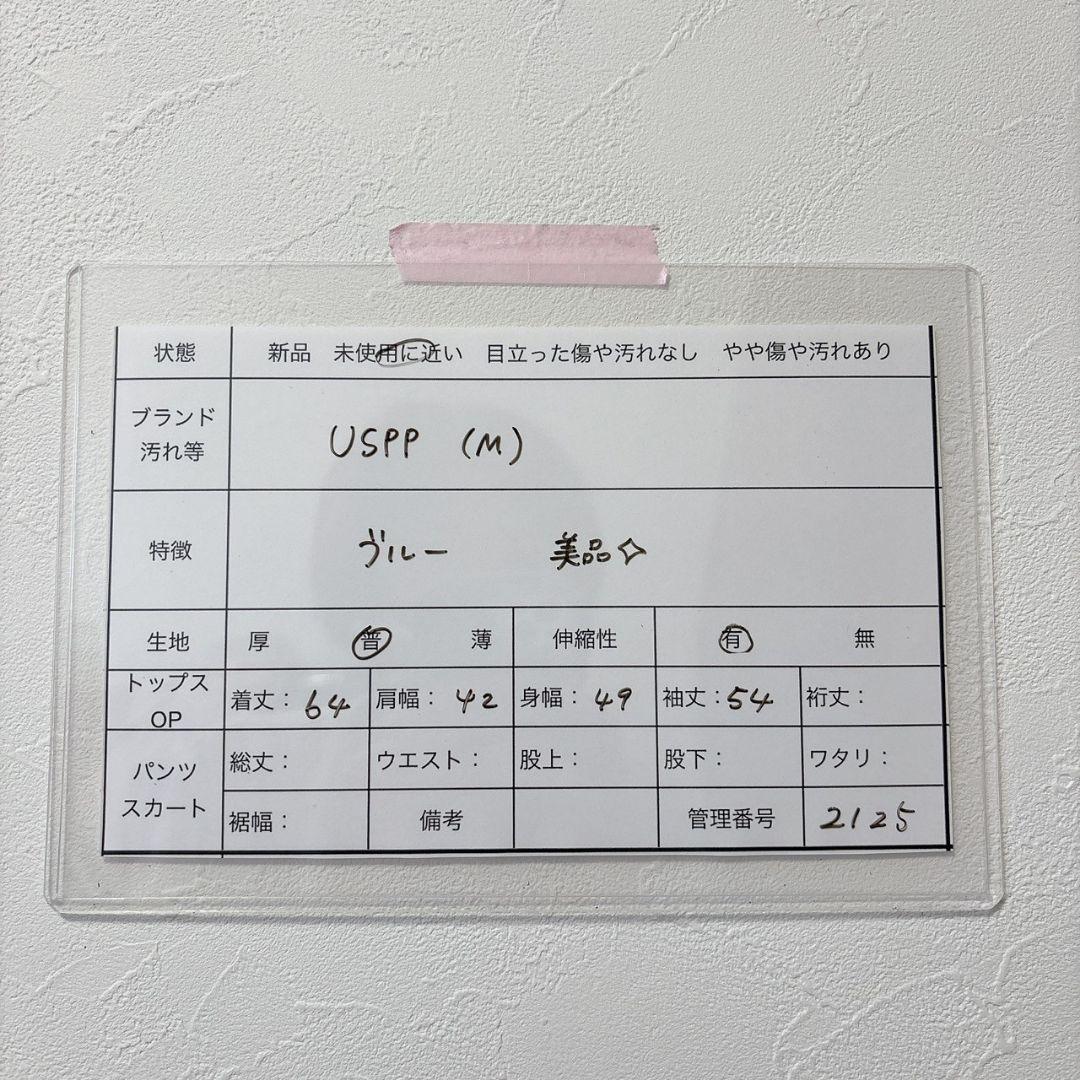 状態 新品 未使用に近い 目立った傷や汚れなし やや傷や汚れあり
ブランド
汚れ等
USPP (M)
特徴 ブルー 美品✧
生地 厚 普 薄 伸縮性 有 無
トップス
OP
着丈：64 肩幅：42 身幅：49 袖丈：54 裄丈：
パンツ
スカート
総丈： ウエスト： 股上： 股下： ワタリ：
裾幅： 備考 管理番号 2125